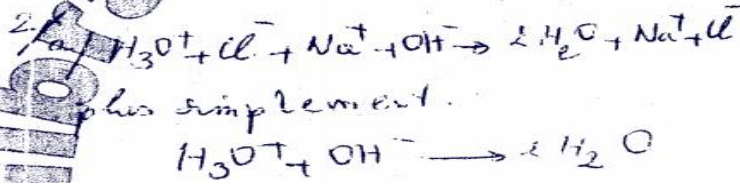 2/ a/ H₃O⁺ + Cl⁻ + Na⁺ + OH⁻ → 2 H₂O + Na⁺ + Cl⁻
plus simplement.
H₃O⁺ + OH⁻ → 2 H₂O